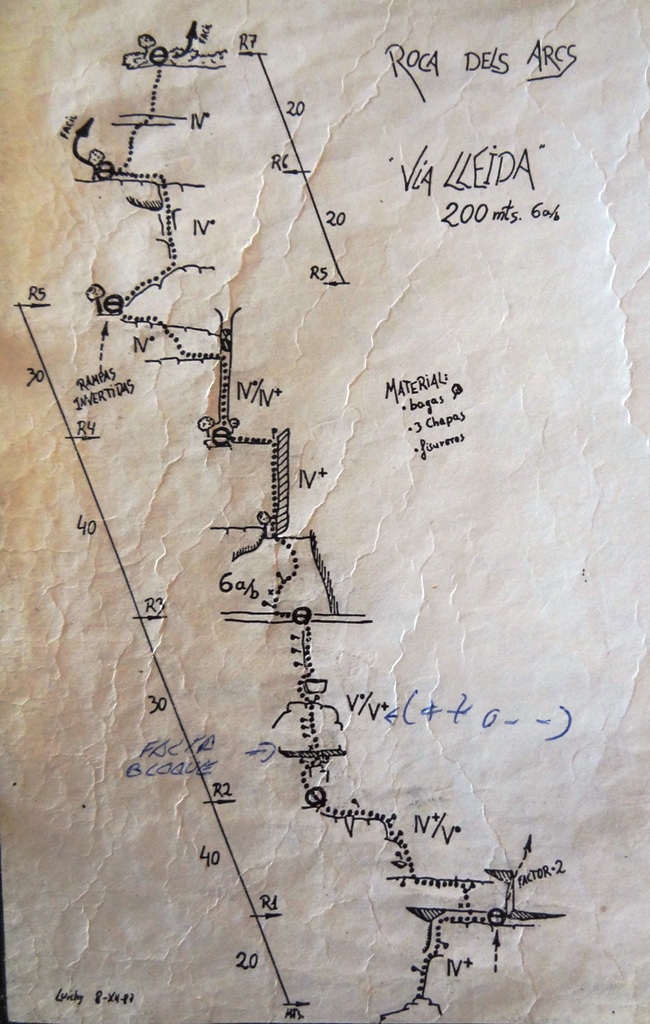 FACIL
R7
ROCA DELS ARCS
20
IVº
FACIL
R6
"VIA LLEIDA"
200 mts. 6a/b
IVº
20
R5
R5
IVº
30
RAMPAS
INVERTIDAS
IVº/IV+
MATERIAL:
• bagas
• 3 Chapas
• fisureros
R4
IV+
40
6a/b
R3
30
Vº/V+
FALTA
BLOQUE
R2
IV+/Vº
40
FACTOR-2
R1
20
IV+
8-XII-87
MTS.